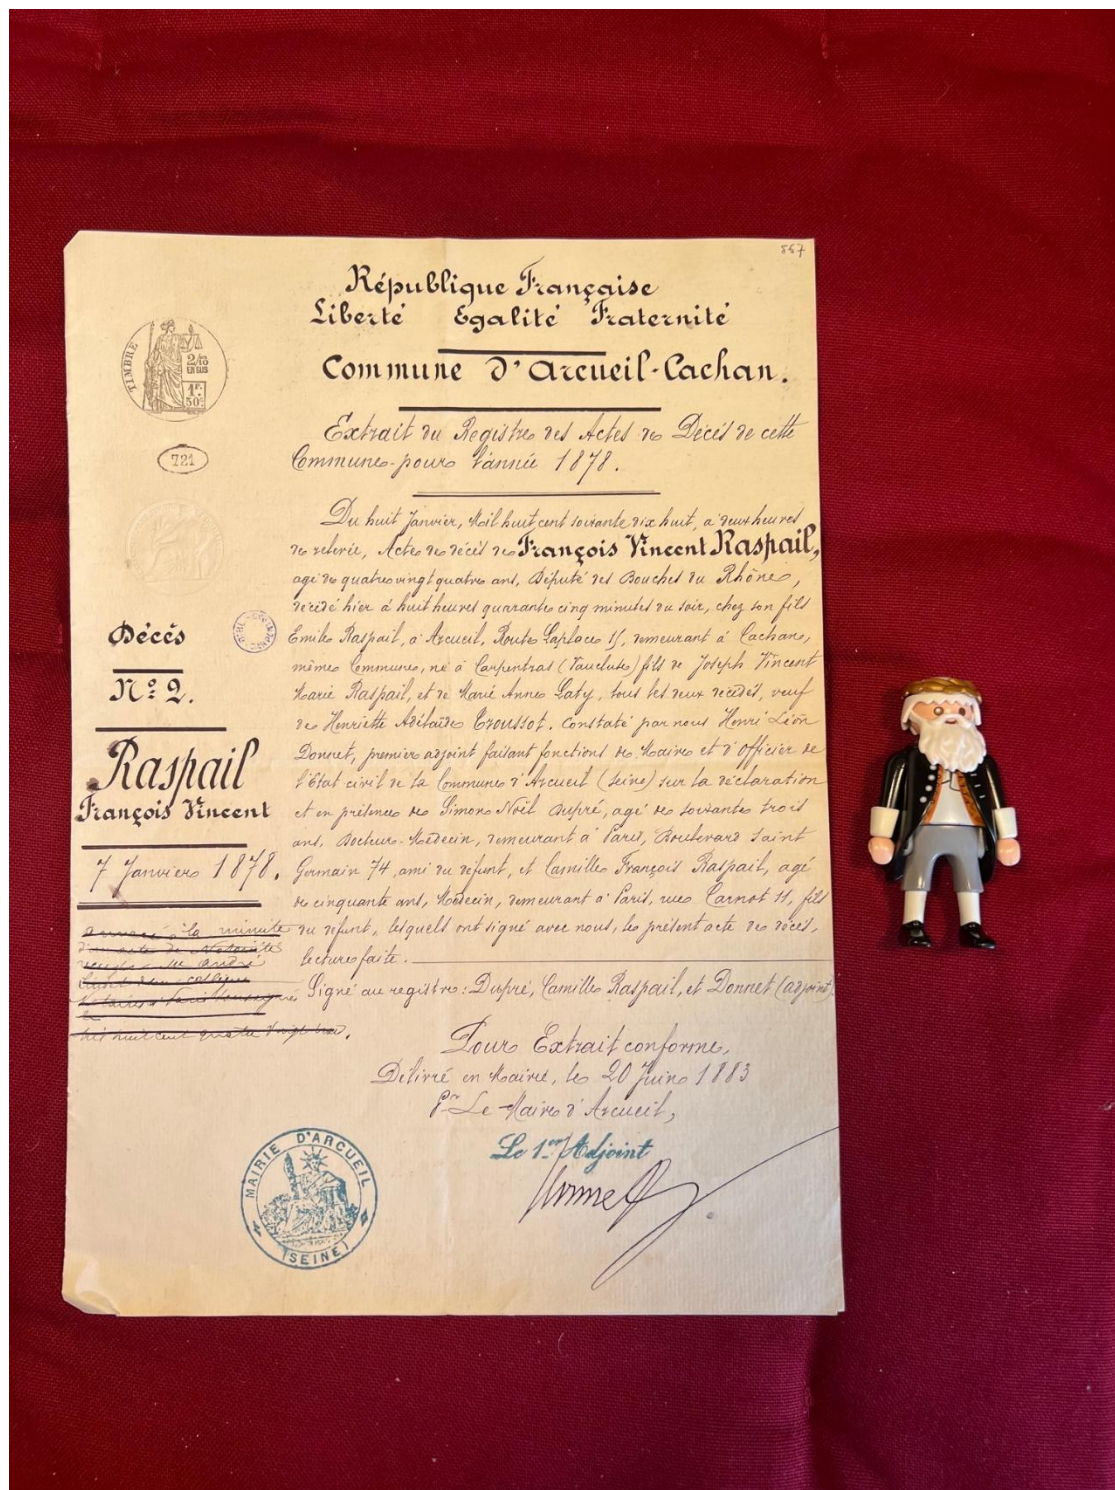 557
République Française
Liberté Egalité Fraternité
Commune d'Arcueil-Cachan.
Extrait du Registre des Actes de Décès de cette
Commune pour l'année 1878.
TIMBRE
2/10
EN SUS
1F.
50c.
721
Décès
N° 2.
Raspail
François Vincent
7 Janvier 1878.
Du huit Janvier, Mil huit cent soixante dix huit, à deux heures
de relevée, Acte de décès de François Vincent Raspail,
agé de quatre vingt quatre ans, Député des Bouches du Rhône,
décédé hier à huit heures quarante cinq minutes du soir, chez son fils
Emile Raspail, à Arcueil, Route Laplace, demeurant à Cachan,
même Commune, né à Carpentras (Vaucluse) fils de Joseph Vincent
Marie Raspail, et de Marie Anne Laty, tous les deux décédés, veuf
de Henriette Adélaïde Troussot. Constaté par nous Henri Léon
Donnet, premier adjoint faisant fonctions de Maire et d'officier de
l'Etat civil de la Commune d'Arcueil (Seine) sur la déclaration
et en présence de Simon Noël Dupré, agé de soixante trois
ans, Docteur-Médecin, demeurant à Paris, Boulevard Saint
Germain 74, ami du défunt, et Camille François Raspail, agé
de cinquante ans, Médecin, demeurant à Paris, rue Carnot, fils
du défunt, lesquels ont signé avec nous, le présent acte de décès,
lecture faite.
Signé au registre: Dupré, Camille Raspail, et Donnet (adjoint).
à la minute
d'un acte de Notoriété
Me André
son collègue
notaires à Paris
le
mil huit cent quatre vingt trois.
Pour Extrait conforme,
Délivré en Mairie, le 20 Juin 1883
Pr Le Maire d'Arcueil,
Le 1er Adjoint
Donnet
MAIRIE D'ARCUEIL
(SEINE)